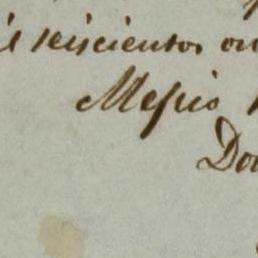 il seiscientos on
Mesio
Do